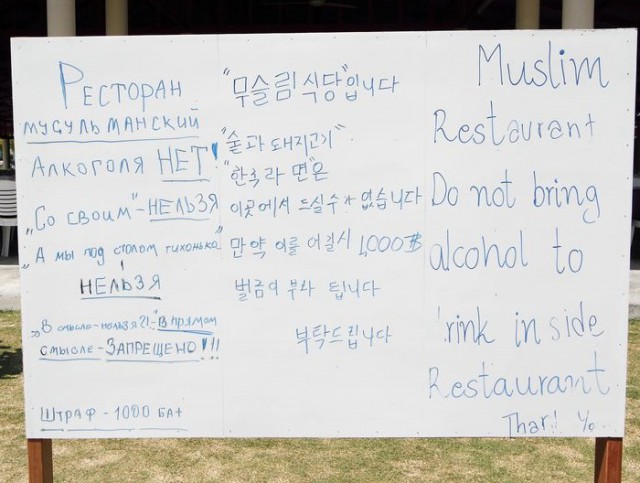 Ресторан
мусульманский
Алкоголя НЕТ!
"Со своим" - НЕЛЬЗЯ
"А мы под столом тихонько"
НЕЛЬЗЯ
"В смысле - нельзя?!" - В прямом
смысле - ЗАПРЕЩЕНО!!!
Штраф - 1000 бат
"무슬림 식당"입니다
"술과 돼지고기"
"한국 라면"은
이곳에서 드실수가 없습니다
만약 이를 어길시 1,000฿
벌금이 부과 됩니다
부탁드립니다
Muslim
Restaurant
Do not bring
alcohol to
rink inside
Restaurant